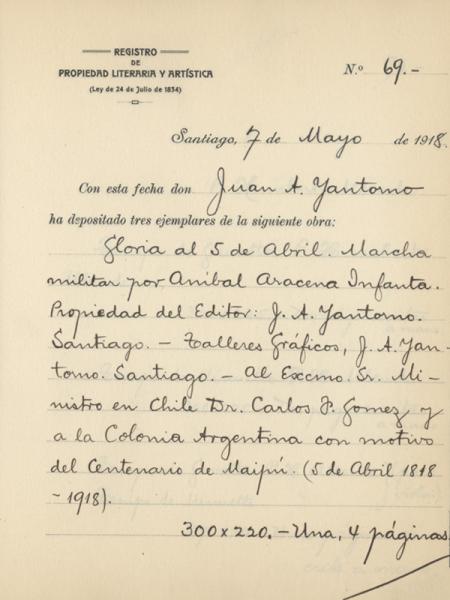 REGISTRO
DE
PROPIEDAD LITERARIA Y ARTÍSTICA
(Ley de 24 de Julio de 1834)
N.º 69.-
Santiago, 7 de Mayo de 1918.
Con esta fecha don Juan A. Yantorno
ha depositado tres ejemplares de la siguiente obra:
Gloria al 5 de Abril. Marcha
militar por Aníbal Aracena Infanta.
Propiedad del Editor: J. A. Yantorno.
Santiago. - Talleres Gráficos, J. A. Yan-
torno. Santiago. - Al Excmo. Sr. Mi-
nistro en Chile Dr. Carlos F. Gomez y
a la Colonia Argentina con motivo
del Centenario de Maipú. (5 de Abril 1818
-1918).
300 x 220. - Una, 4 páginas